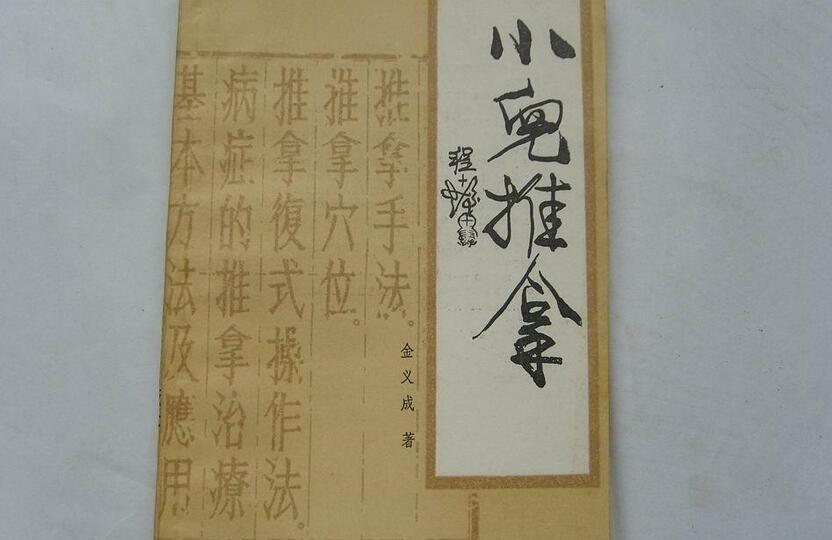 小兒推拿
推拿手法。
推拿穴位。
推拿復式操作法。
病症的推拿治療
基本方法及應用
金义成 著